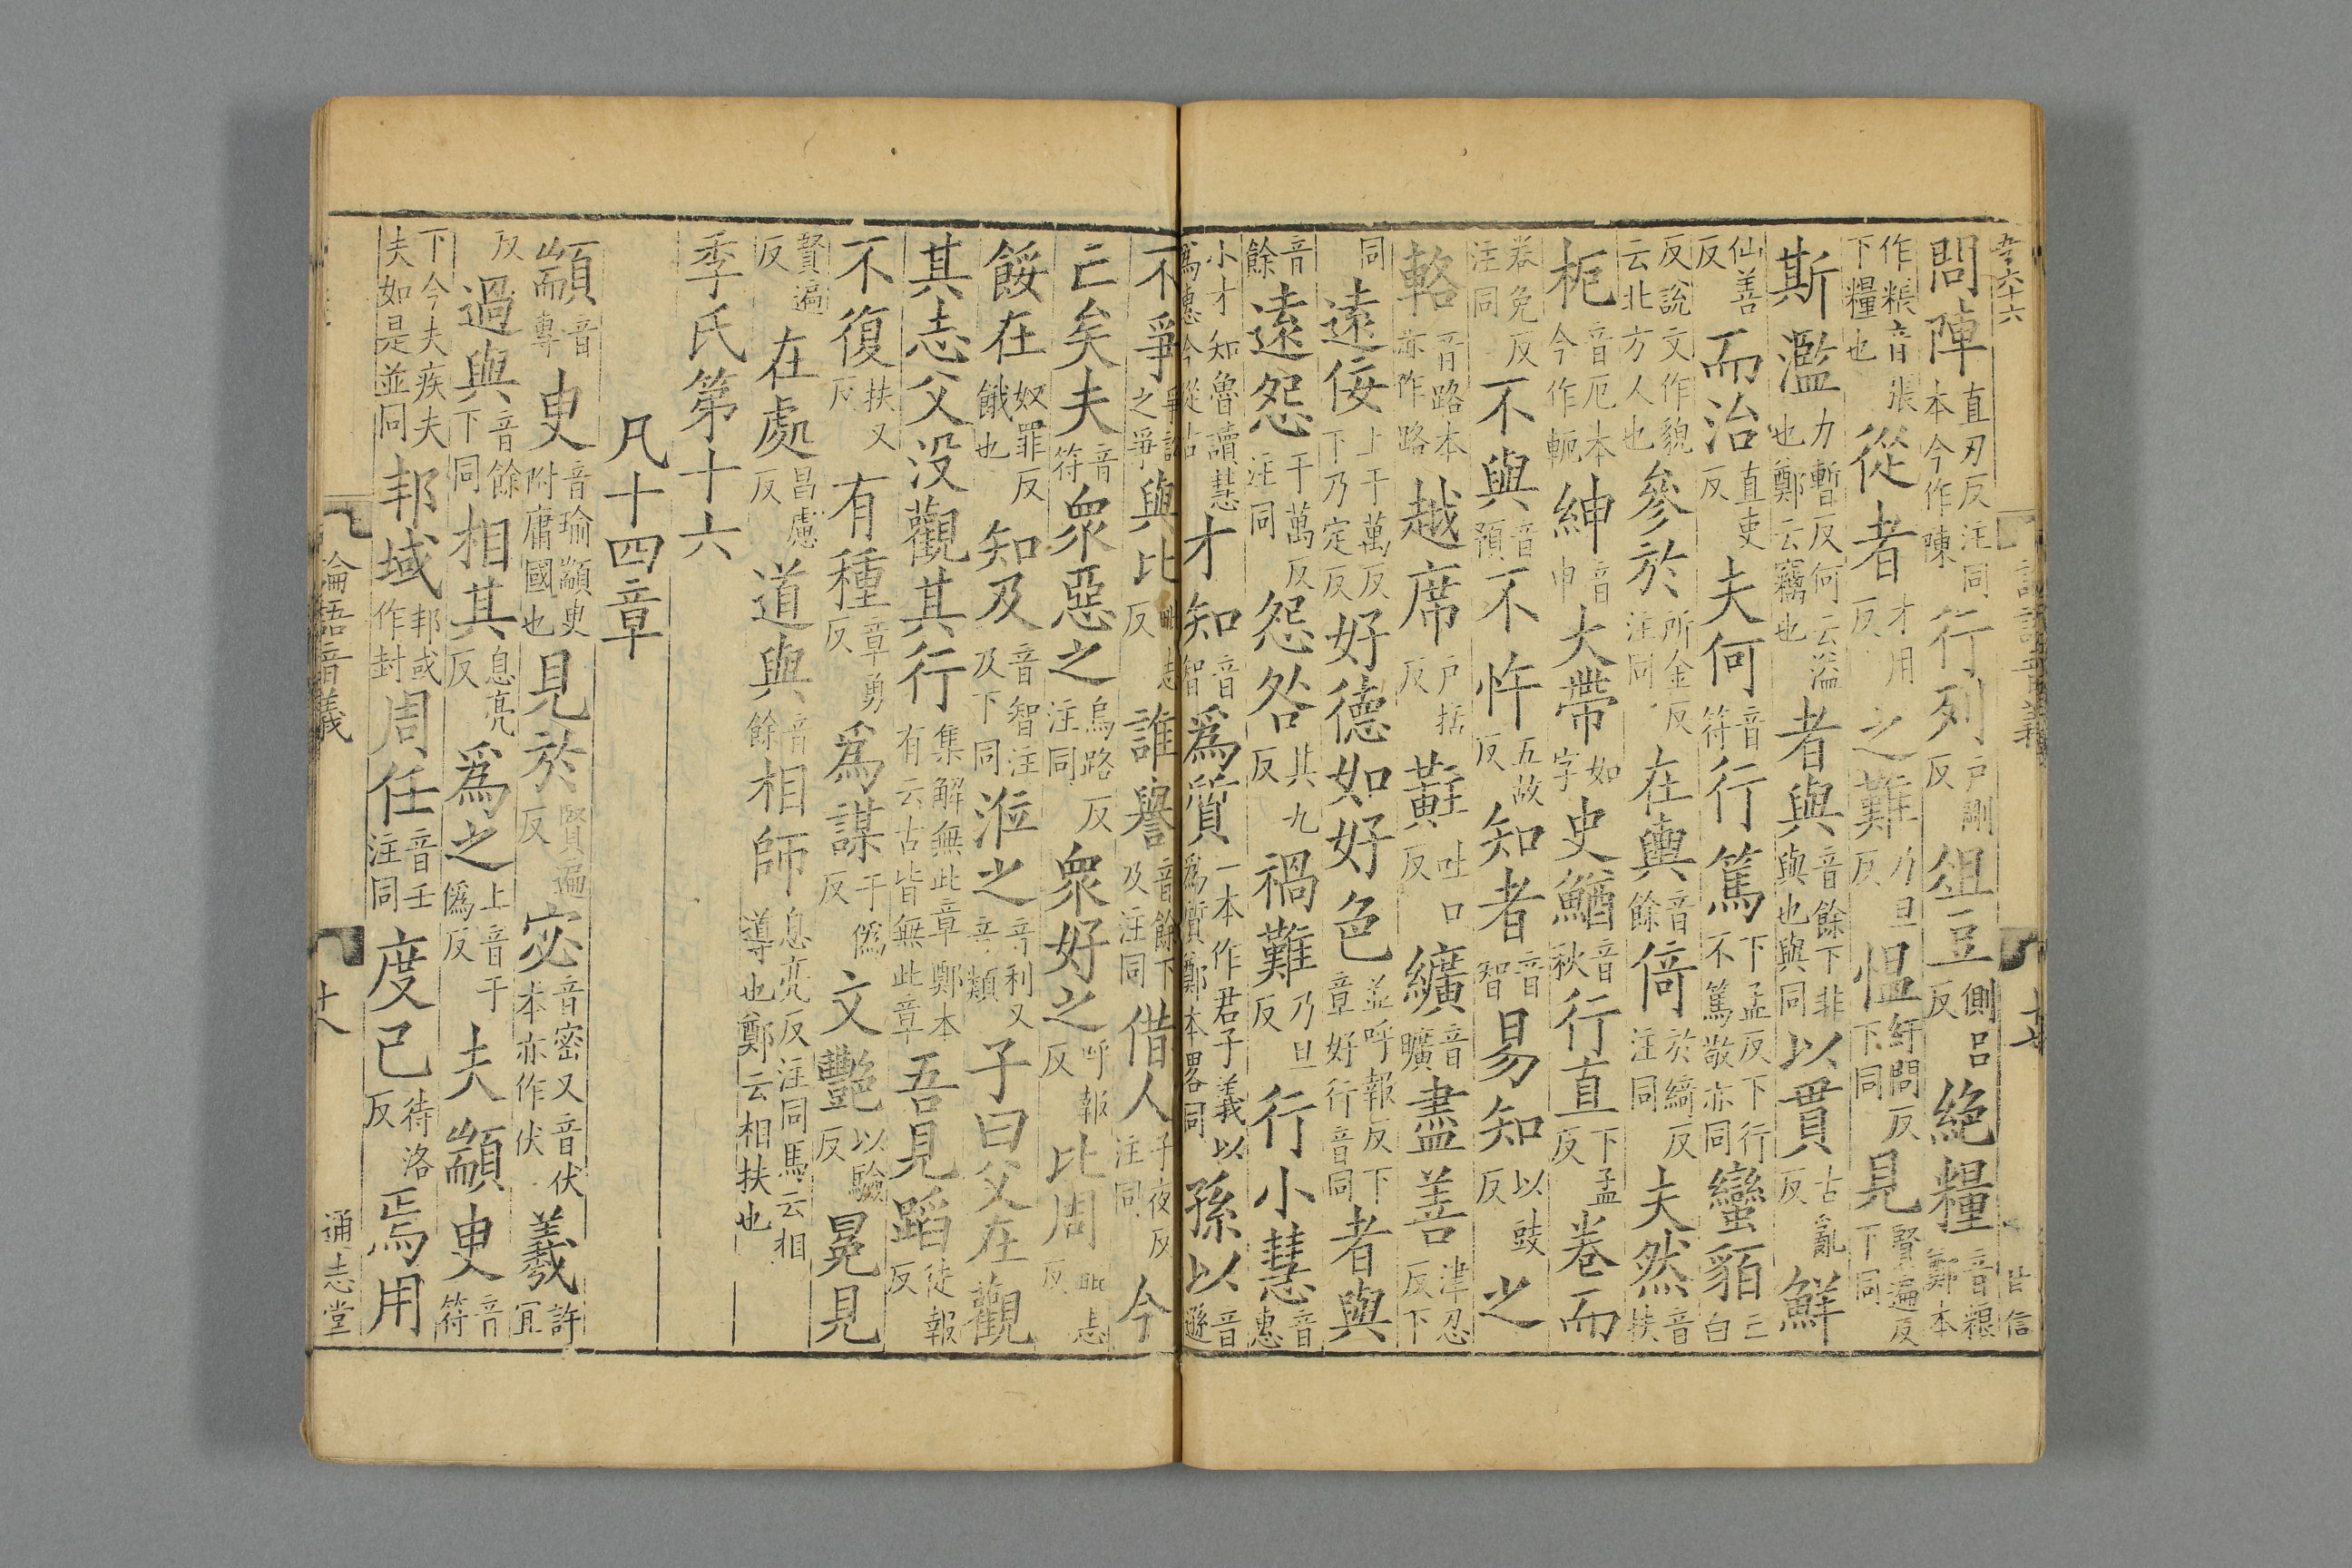 問陣直刃反注同本今作陳行列户剛反俎豆側吕反絶糧音粮鄭本
作粻音張下糧也從者才用反之難乃旦反愠紆問反下同見賢遍反下同
斯濫力暫反何云溢也鄭云竊也者與音餘下非與也與同以貫古亂反鮮
仙善反而治直吏反夫何音符行行篤下孟反下行不篤敬亦同蠻貊亡白
反說文作貌云北方人也參於所金反注同在輿音餘倚於綺反注同夫然音扶
枙音厄本今作軛紳音申大帶如字史鰌音秋行直下孟反卷而
卷免反注同不與音預不忤五故反知者音智易知以豉反之
輅音路本亦作路越席户括反黈吐口反纊音曠盡善津忍反下
同遠佞上于萬反下乃定反好德如好色並呼報反下章好行音同者與
音餘遠怨于萬反注同怨咎其九反禍難乃旦反行小慧音惠
小才知魯讀慧爲惠今從古才知音智爲質一本作君子義以爲質鄭本畧同孫以音遜
不爭爭訟之爭與比毗志反誰譽音餘下及注同借人子夜反注同今
亡矣夫音符衆惡之烏路反注同衆好之呼報反比周毗志反
餒在奴罪反餓也知及音智注及下同涖之音利又音類子曰父在觀
其志父没觀其行集解無此章鄭本有云古皆無此章吾見蹈徒報反
不復扶又反有種章勇反爲謀于僞反文艷以驗反冕見
賢遍反在處昌慮反道與音餘相師息亮反注同馬云相導也鄭云相扶也
季氏第十六
凡十四章
顓音專臾音瑜顓臾附庸國也見於賢遍反宓音密又音伏本亦作伏羲許宜
反過與音餘下同相其息亮反爲之上音于僞反夫顓臾音符
下今夫疾夫夫如是並同邦域邦或作封周任音壬注同度己待洛反焉用
論語音義 十八 通志堂